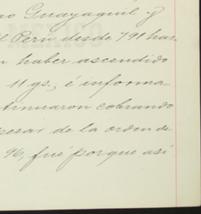 Guayaquil y
Perú desde 791 has
haber ascendido
11 gs; é informa
tinuaron cobrando
pesar de la orden de
96, fué porque así